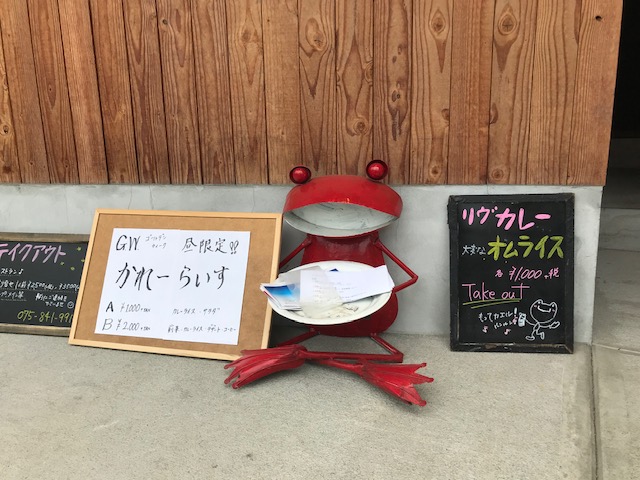 テイクアウト
075-841-99
GW ゴールデン
ウィーク
昼限定!!
かれーらいす
A ¥1000+税 カレーライス・サラダ
B ¥2,000+税 前菜・カレーライス・デザート・コーヒー
リヴカレー
大変な オムライス
各 ¥1,000+税
Take out
もってカエル!